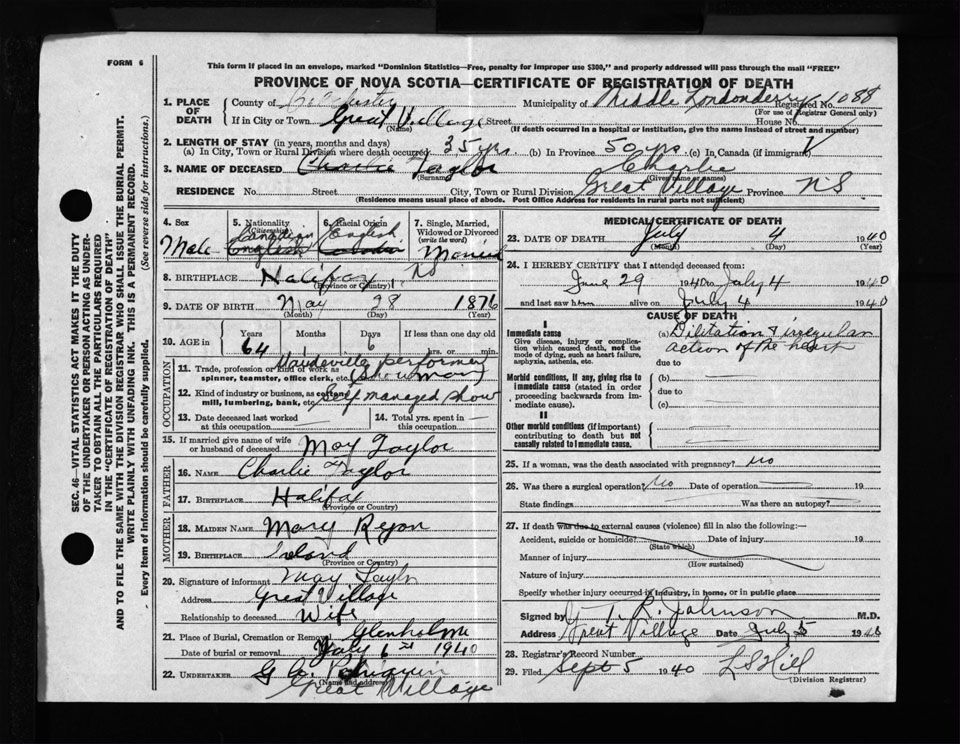 FORM 6
This form if placed in an envelope, marked "Dominion Statistics—Free, penalty for improper use $300," and properly addressed will pass through the mail "FREE"
PROVINCE OF NOVA SCOTIA—CERTIFICATE OF REGISTRATION OF DEATH
SEC. 46—VITAL STATISTICS ACT MAKES IT THE DUTY
OF THE UNDERTAKER OR PERSON ACTING AS UNDER-
TAKER TO OBTAIN ALL THE PARTICULARS REQUIRED
IN THE "CERTIFICATE OF REGISTRATION OF DEATH"
AND TO FILE THE SAME WITH THE DIVISION REGISTRAR WHO SHALL ISSUE THE BURIAL PERMIT.
WRITE PLAINLY WITH UNFADING INK. THIS IS A PERMANENT RECORD.
Every item of information should be carefully supplied. (See reverse side for instructions.)
1. PLACE OF DEATH County of Colchester Municipality of Middle Londonderry Registered No. 1088
(For use of Registrar General only)
If in City or Town Great Village Street House No.
(Name) (If death occurred in a hospital or institution, give the name instead of street and number)
2. LENGTH OF STAY (in years, months and days)
(a) In City, Town or Rural Division where death occurred 35 yrs. (b) In Province 50 yrs. (c) In Canada (if immigrant) V
3. NAME OF DECEASED Charlie Taylor Charlie
(Surname) (Given name or names)
RESIDENCE No. Street City, Town or Rural Division Great Village Province N S
(Residence means usual place of abode. Post Office Address for residents in rural parts not sufficient)
4. Sex 5. Nationality (Citizenship) 6. Racial Origin 7. Single, Married, Widowed or Divorced (write the word)
Male Canadian English English Married
8. BIRTHPLACE Halifax, NS
(Province or Country)
9. DATE OF BIRTH May 28 1876
(Month) (Day) (Year)
10. AGE in Years Months Days If less than one day old
64 6 hrs. or min.
OCCUPATION
11. Trade, profession or kind of work as spinner, teamster, office clerk, etc. Vaudeville performer (Showman)
12. Kind of industry or business, as cotton mill, lumbering, bank, etc. Self managed show
13. Date deceased last worked at this occupation 14. Total yrs. spent in this occupation
15. If married give name of wife or husband of deceased May Taylor
FATHER
16. NAME Charlie Taylor
17. BIRTHPLACE Halifax
(Province or Country)
MOTHER
18. MAIDEN NAME Mary Regan
19. BIRTHPLACE Ireland
(Province or Country)
20. Signature of informant May Taylor
Address Great Village
Relationship to deceased Wife
21. Place of Burial, Cremation or Removal Glenholme
Date of burial or removal July 6 1940
22. UNDERTAKER G
(Name and address)
Great Village
MEDICAL CERTIFICATE OF DEATH
23. DATE OF DEATH July 4 1940
(Month) (Day) (Year)
24. I HEREBY CERTIFY that I attended deceased from:
June 29 1940 to July 4 1940
and last saw him alive on July 4 1940
CAUSE OF DEATH
I
Immediate cause (a) Dilitation & irregular
Give disease, injury or complication which caused death, not the mode of dying, such as heart failure, asphyxia, asthenia, etc. action of the heart
due to
Morbid conditions, if any, giving rise to immediate cause (stated in order proceeding backwards from immediate cause). (b)
due to
(c)
II
Other morbid conditions (if important) contributing to death but not causally related to immediate cause.
25. If a woman, was the death associated with pregnancy? No
26. Was there a surgical operation? No Date of operation 19
State findings Was there an autopsy?
27. If death was due to external causes (violence) fill in also the following:—
Accident, suicide or homicide? Date of injury 19
(State which)
Manner of injury
(How sustained)
Nature of injury
Specify whether injury occurred in industry, in home, or in public place
Signed by T. R. Johnson M.D.
Address Great Village Date July 5 1940
28. Registrar's Record Number
29. Filed Sept 5 1940 L S Hill
(Division Registrar)